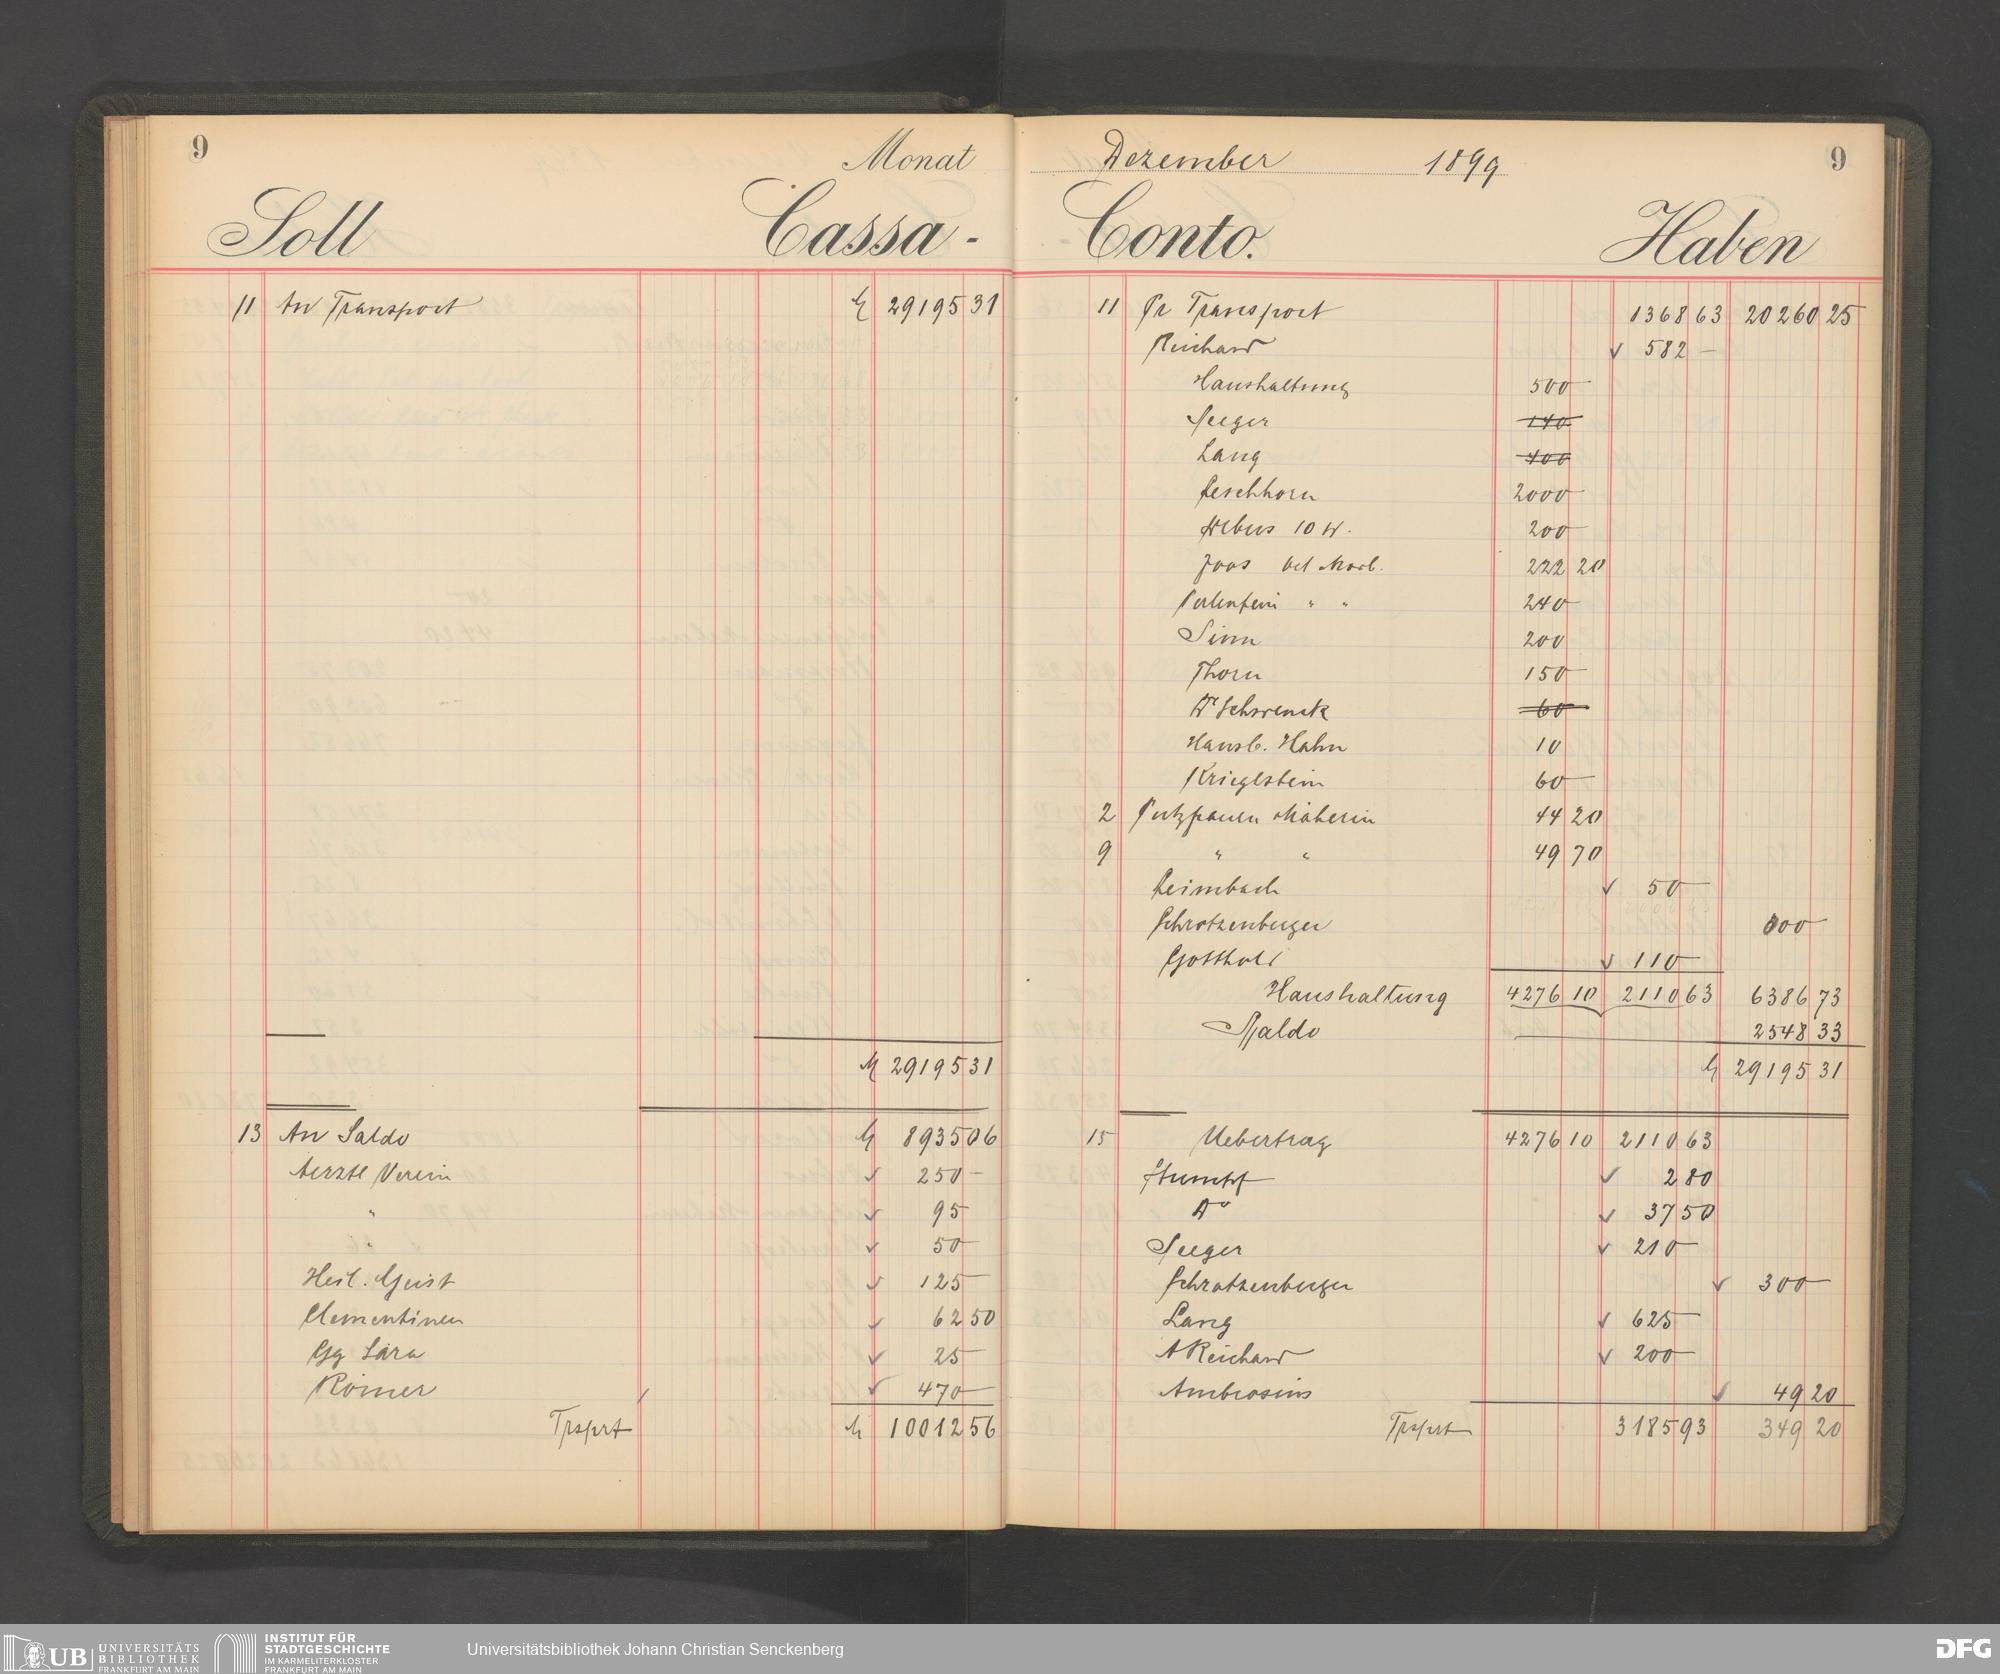 9
Monat
Soll Cassa -
11 An Transport M 29195 31
M 29195 31
13 An Saldo M 8935 06
Aerzte Verein ✓ 250 -
" ✓ 95
" ✓ 50
Heil. Geist ✓ 125
Clementinen ✓ 62 50
Gg Sara ✓ 25
Römer ✓ 470
Trsprt M 10012 56
Dezember 1899 9
Conto. Haben
11 Pr Transport 1368 63 20260 25
Reichard ✓ 582 -
Haushaltung 500
Seeger 140
Lang 400
Peschhorn 2000
200
Joos 222 20
" " 240
Sinn 200
Thorn 150
Dr Schwenck 60
Hausb. Hahn 10
Krieglstein 60
2 Putzfrauen Näherin 44 20
9 " " 49 70
Leimbach ✓ 50
Schratzenberger
Gotthold ✓ 110
Haushaltung 4276 10 2110 63 6386 73
Saldo 2548 33
M 29195 31
15 Uebertrag 4276 10 2110 63
Stumpf ✓ 2 80
Do ✓ 37 50
Seeger ✓ 210
Schratzenberger ✓ 300
Lang ✓ 625
A Reichard ✓ 200
Ambrosius ✓ 49 20
Trsprt 3185 93 349 20
UB UNIVERSITÄTS
BIBLIOTHEK
FRANKFURT AM MAIN
INSTITUT FÜR
STADTGESCHICHTE
IM KARMELITERKLOSTER
FRANKFURT AM MAIN
Universitätsbibliothek Johann Christian Senckenberg
DFG